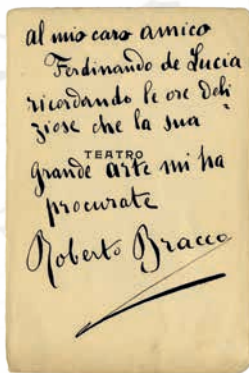 al mio caro amico
Ferdinando de Lucia
ricordando le ore deli
ziose che la sua
TEATRO
grande arte mi ha
procurate
Roberto Bracco